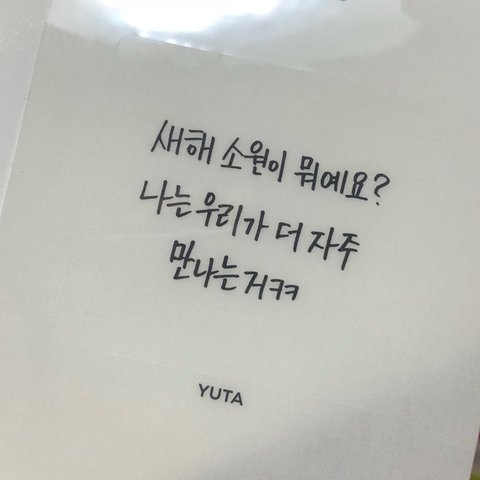 새해 소원이 뭐예요?
나는 우리가 더 자주
만나는거ㅋㅋ
YUTA